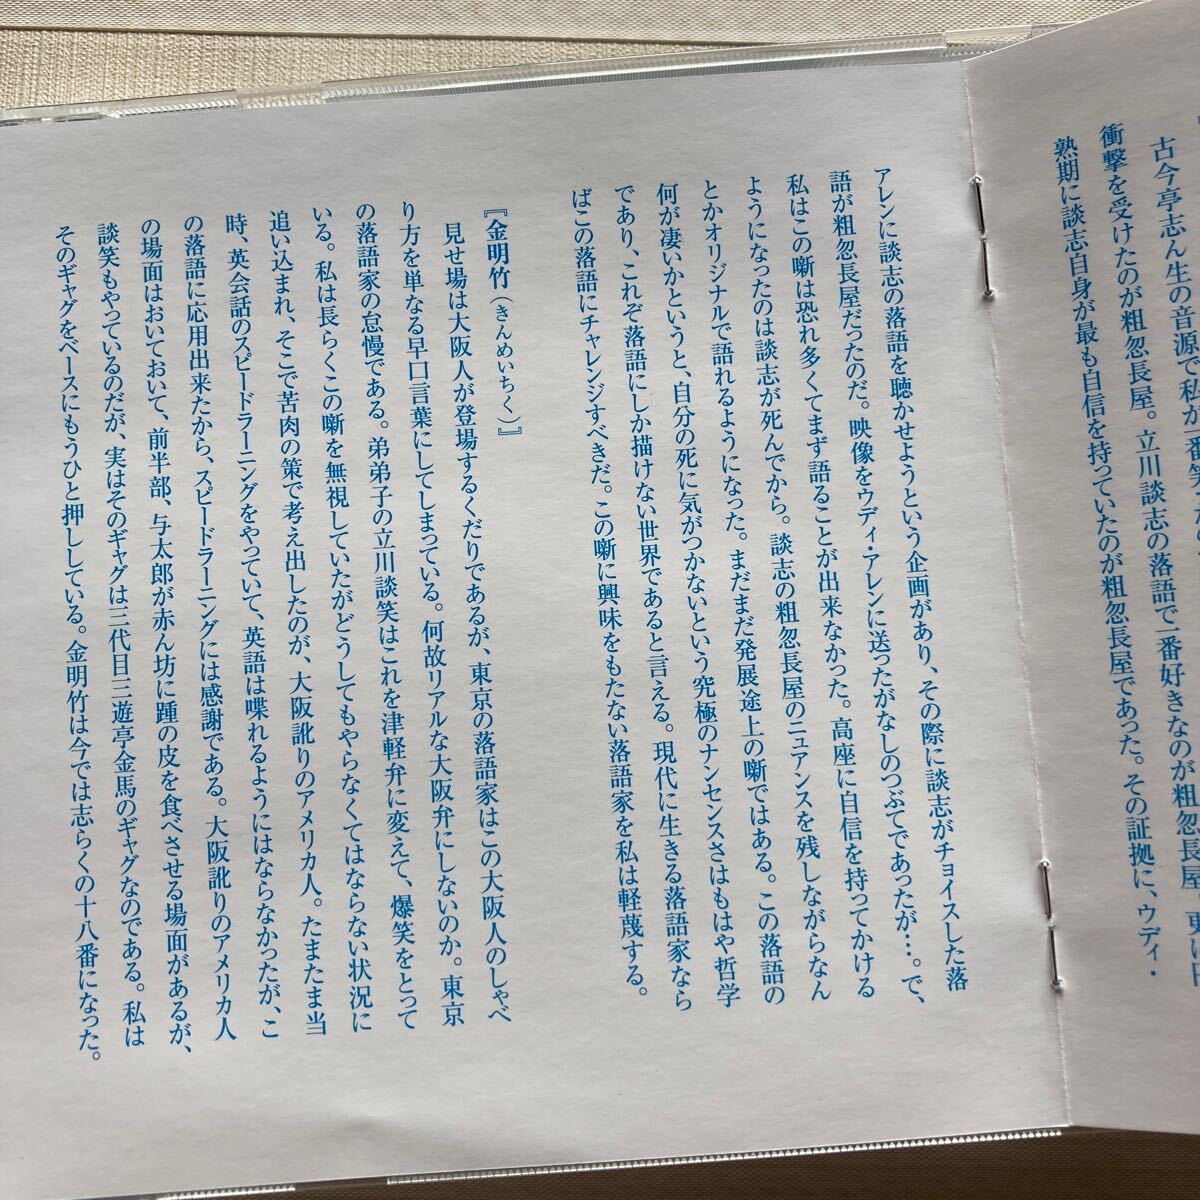 古今亭志ん生の音源で私が一番笑
衝撃を受けたのが粗忽長屋。立川談志の落語で一番好きなのが粗忽長屋。
熟期に談志自身が最も自信を持っていたのが粗忽長屋であった。その証拠に、ウディ・
アレンに談志の落語を聴かせようという企画があり、その際に談志がチョイスした落
語が粗忽長屋だったのだ。映像をウディ・アレンに送ったがなしのつぶてであったが…。で、
私はこの噺は恐れ多くてまず語ることが出来なかった。高座に自信を持ってかける
ようになったのは談志が死んでから。談志の粗忽長屋のニュアンスを残しながらなん
とかオリジナルで語れるようになった。まだまだ発展途上の噺ではある。この落語の
何が凄いかというと、自分の死に気がつかないという究極のナンセンスさはもはや哲学
であり、これぞ落語にしか描けない世界であると言える。現代に生きる落語家なら
ばこの落語にチャレンジすべきだ。この噺に興味をもたない落語家を私は軽蔑する。
『金明竹（きんめいちく）』
見せ場は大阪人が登場するくだりであるが、東京の落語家はこの大阪人のしゃべ
り方を単なる早口言葉にしてしまっている。何故リアルな大阪弁にしないのか。東京
の落語家の怠慢である。弟弟子の立川談笑はこれを津軽弁に変えて、爆笑をとって
いる。私は長らくこの噺を無視していたがどうしてもやらなくてはならない状況に
追い込まれ、そこで苦肉の策で考え出したのが、大阪訛りのアメリカ人。たまたま当
時、英会話のスピードラーニングをやっていて、英語は喋れるようにはならなかったが、こ
の落語に応用出来たから、スピードラーニングには感謝である。大阪訛りのアメリカ人
の場面はおいておいて、前半部、与太郎が赤ん坊に踵の皮を食べさせる場面があるが、
談笑もやっているのだが、実はそのギャグは三代目三遊亭金馬のギャグなのである。私は
そのギャグをベースにもうひと押ししている。金明竹は今では志らくの十八番になった。